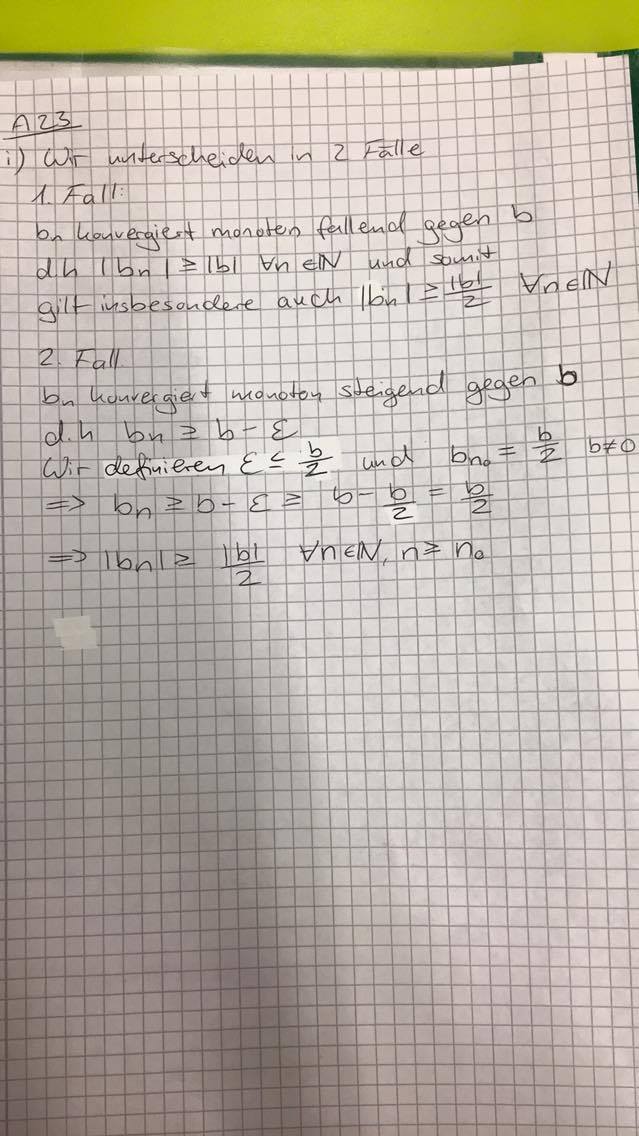 A23
i) Wir unterscheiden in 2 Fälle
1. Fall:
bn konvergiert monoton fallend gegen b
d.h |bn| ≥ |b| ∀n ∈ ℕ und somit
gilt insbesondere auch |bn| ≥ |b|/2 ∀n ∈ ℕ
2. Fall
bn konvergiert monoton steigend gegen b
d.h bn ≥ b - ε
Wir definieren ε ≤ b/2 und bn₀ = b/2 b≠0
⇒ bn ≥ b - ε ≥ b - b/2 = b/2
⇒ |bn| ≥ |b|/2 ∀n ∈ ℕ, n ≥ n₀